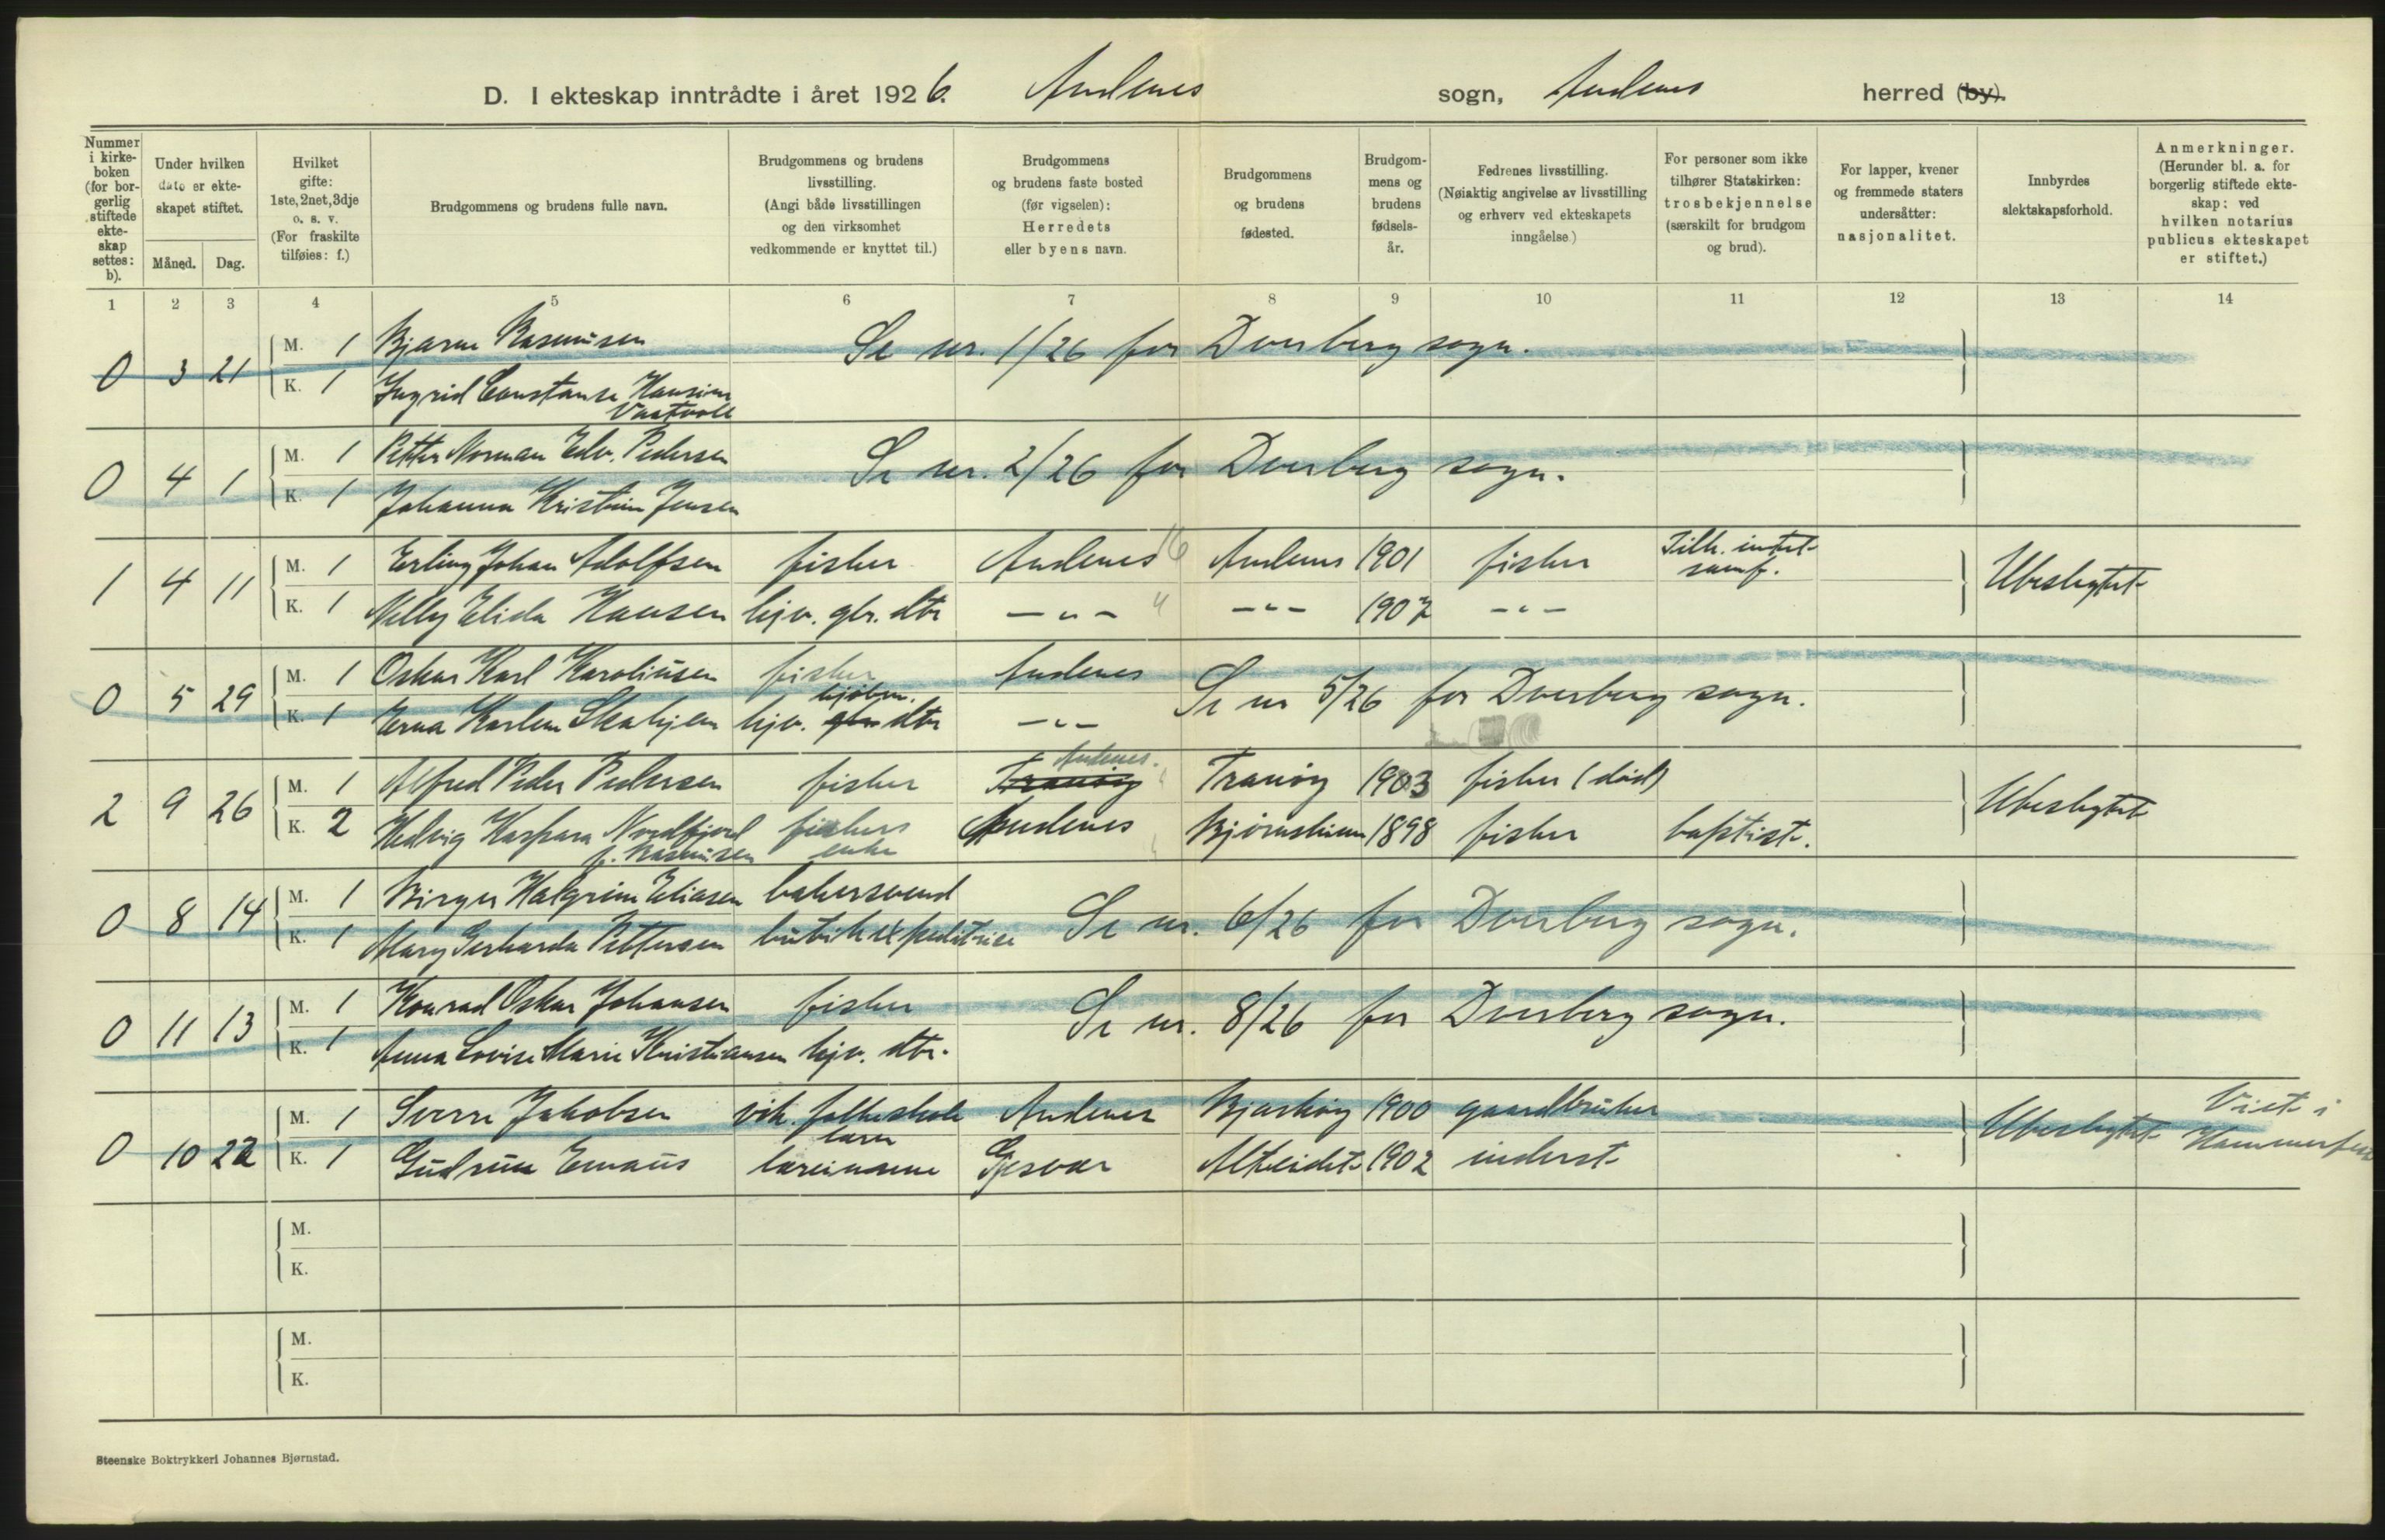 D. I ekteskap inntrådte i året 1926. Andenes sogn, Andenes herred (by).
Nummer i kirke-boken (for bor-gerlig stiftede ekte-skap settes: b).
Under hvilken dato er ekte-skapet stiftet.
Måned. Dag.
Hvilket gifte: 1ste, 2net, 3dje o. s. v. (For fraskilte tilføies: f.)
Brudgommens og brudens fulle navn.
Brudgommens og brudens livsstilling. (Angi både livsstillingen og den virksomhet vedkommende er knyttet til.)
Brudgommens og brudens faste bosted (før vigselen): Herredets eller byens navn.
Brudgommens og brudens fødested.
Brudgom-mens og brudens fødsels-år.
Fedrenes livsstilling. (Nøiaktig angivelse av livsstilling og erhverv ved ekteskapets inngåelse.)
For personer som ikke tilhører Statskirken: trosbekjennelse (særskilt for brudgom og brud).
For lapper, kvener og fremmede staters undersåtter: nasjonalitet.
Innbyrdes slektskapsforhold.
Anmerkninger. (Herunder bl. a. for borgerlig stiftede ekte-skap: ved hvilken notarius publicus ekteskapet er stiftet.)
1 2 3 4 5 6 7 8 9 10 11 12 13 14
0 3 21 M. 1 Bjarne Rasmusen Se nr. 1/26 for Dverberg sogn.
K. 1 Ingrid Constanse Hansine
Vaatvoll
0 4 1 M. 1 Petter Norman Edv. Pedersen Se nr. 2/26 for Dverberg sogn.
K. 1 Johanna Kristine Jensen
1 4 11 M. 1 Erling Johan Adolfsen fisker Andenes 16 Andenes 1901 fisker Tilh. intet samf. Ubeslegtet
K. 1 Nelly Elida Hansen hjv. gbr. dtr — " — " — " — 1907 — " —
0 5 29 M. 1 Oskar Karl Karoliusen fisker Andenes Se nr 5/26 for Dverberg sogn.
K. 1 Erna Karlem Skahjem hjv. gbr dtr — " —
2 9 26 M. 1 Alfred Peder Pedersen fisker Tranøy Andenes. Tranøy 1903 fisker (død) Ubeslegtet
K. 2 Hedvig Kaspara Nordfjord fiskers Andenes Bjørnskinn 1898 fisker baptist.
f. Rasmusen enke
0 8 14 M. 1 Birger Halgrim Eliasen bakersvend Se nr. 6/26 for Dverberg sogn.
K. 1 Mary Gerharda Pettersen butikexpeditrise
0 11 13 M. 1 Konrad Oskar Johansen fisker Se nr. 8/26 for Dverberg sogn.
K. 1 Anna Lovise Marie Kristiansen hjv. dtr.
0 10 22 M. 1 Sverre Jakobsen vik. folkeskole Andenes Bjarkøy 1900 gaardbruker Ubeslegtet Viet i
lærer Hammerfest
K. 1 Gudrun Emaus lærerinne Gjesvær Alteidet 1902 inderst
M.
K.
M.
K.
Steenske Boktrykkeri Johannes Bjørnstad.